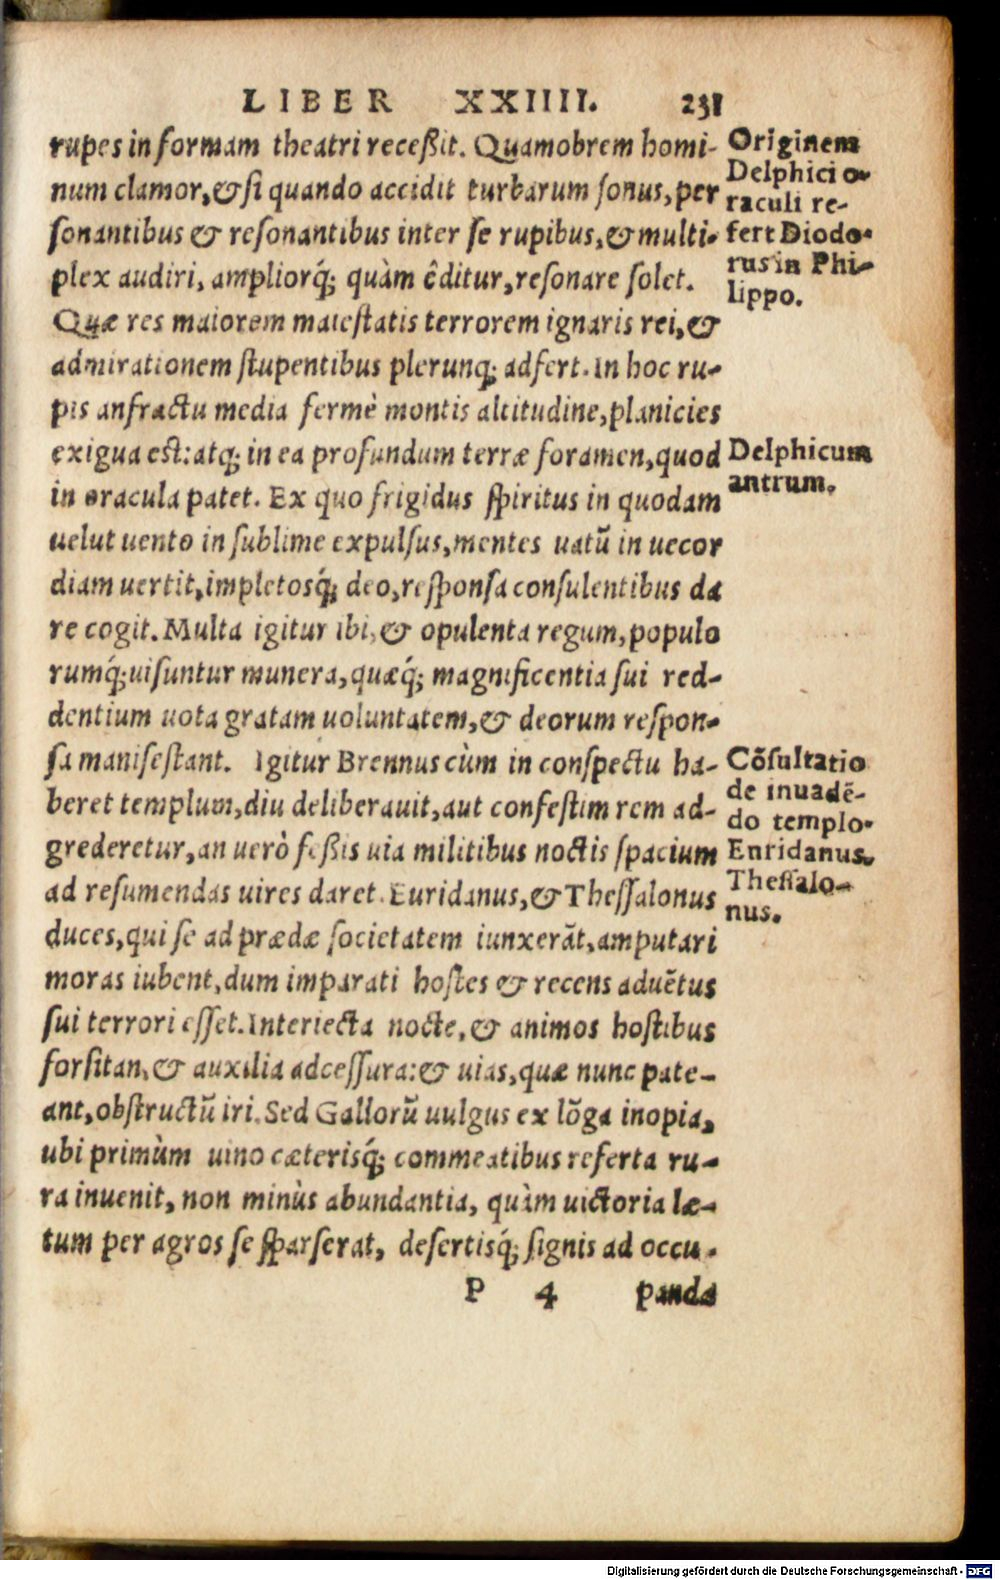 LIBER XXIIII. 231
rupes in formam theatri receßit. Quamobrem homi-
num clamor, & si quando accidit turbarum sonus, per
sonantibus & resonantibus inter se rupibus, & multi-
plex audiri, ampliorq́; quàm êditur, resonare solet.
Quæ res maiorem maiestatis terrorem ignaris rei, &
admirationem stupentibus plerunq; adfert. In hoc ru-
pis anfractu media fermè montis altitudine, planicies
exigua est: atq; in ea profundum terræ foramen, quod
in oracula patet. Ex quo frigidus spiritus in quodam
uelut uento in sublime expulsus, mentes uatũ in uecor
diam uertit, impletosq́; deo, responsa consulentibus da
re cogit. Multa igitur ibi, & opulenta regum, populo
rumq́; uisuntur munera, quæq́; magnificentia sui red-
dentium uota gratam uoluntatem, & deorum respon-
sa manifestant. Igitur Brennus cùm in conspectu ha-
beret templum, diu deliberauit, aut confestim rem ad-
grederetur, an uerò feßis uia militibus noctis spacium
ad resumendas uires daret. Euridanus, & Thessalonus
duces, qui se ad prædæ societatem iunxerãt, amputari
moras iubent, dum imparati hostes & recens aduẽtus
sui terrori esset. Interiecta nocte, & animos hostibus
forsitan, & auxilia adcessura: & uias, quæ nunc pate-
ant, obstructũ iri. Sed Gallorũ uulgus ex lõga inopia,
ubi primùm uino cæterisq́; commeatibus referta ru-
ra inuenit, non minùs abundantia, quàm uictoria læ-
tum per agros se sparserat, desertisq́; signis ad occu-
P 4 panda
Originem
Delphici o-
raculi re-
fert Diodo-
rus in Phi-
lippo.
Delphicum
antrum.
Cõsultatio
de inuadẽ-
do templo.
Enridanus.
Thessalo-
nus.
Digitalisierung gefördert durch die Deutsche Forschungsgemeinschaft - DFG